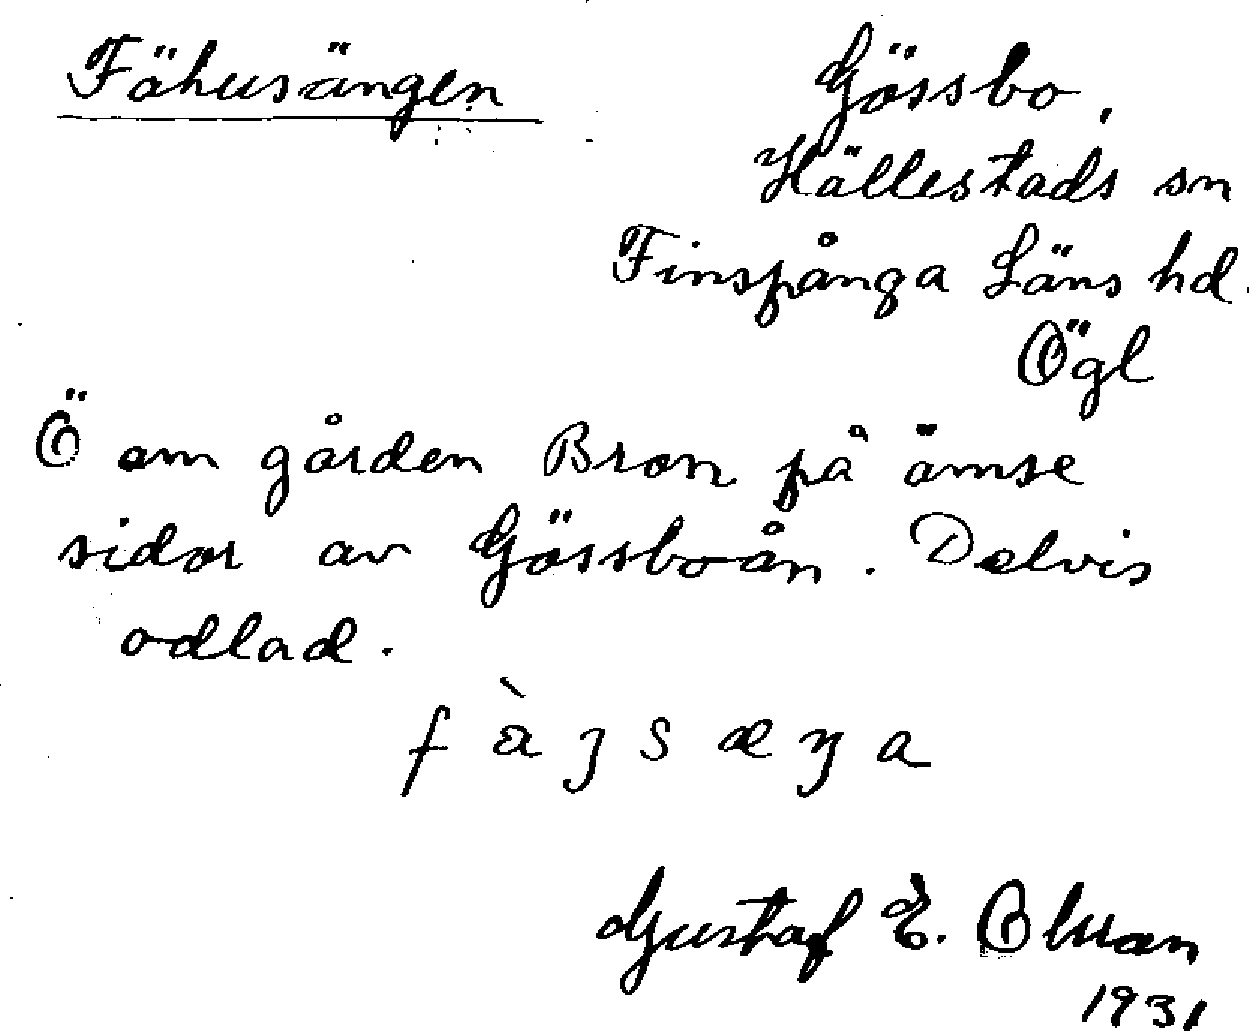 Fähusängen
Gössbo,
Hällestads sn
Finspånga Läns hd.
Ögl
Ö om gården Bron på ömse
sidor av Gössboån. Delvis
odlad.
f à j s æ ŋ a
Gustaf E.
1931